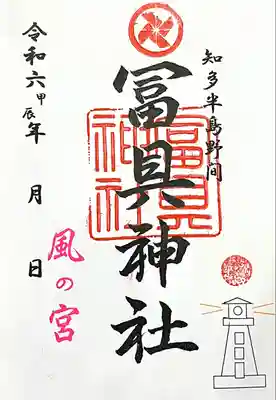 知多半島野间
冨具神社
富具
神社
令和六甲辰年　月　日
風の宮